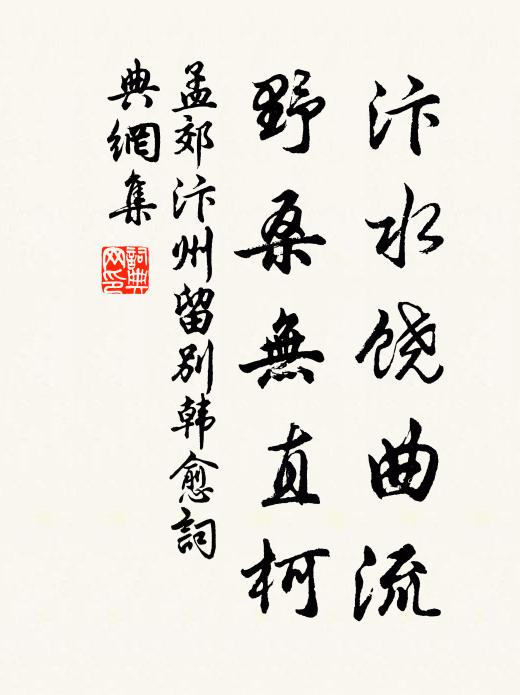 汴水饶曲流
野桑無直柯
孟郊汴州留别韩愈詞
典網集
詞典
网印